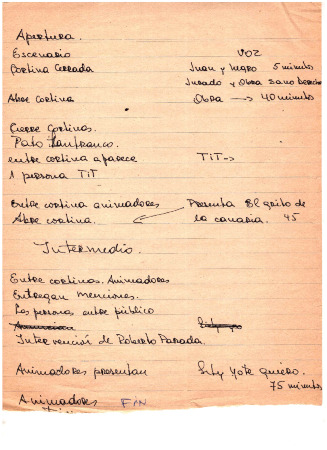 Apertura.
Escenario VOZ
Cortina Cerrada Juan y Negro 5 minutos
Jurado y Obra
Abre Cortina Obra → 40 minutos
Cierre Cortinas.
Pato Lanfranco.
entre cortina aparece TiT →
1 persona TiT
Entre cortina animadores Presenta El grito de
Abre cortina. la canaria. 45
Intermedio.
Entre cortinas. Animadores
Entregan Menciones.
persona entre público
Intervención de Roberto Parada.
Animadores presentan yote quiero.
75 minutos
Animadores FiN